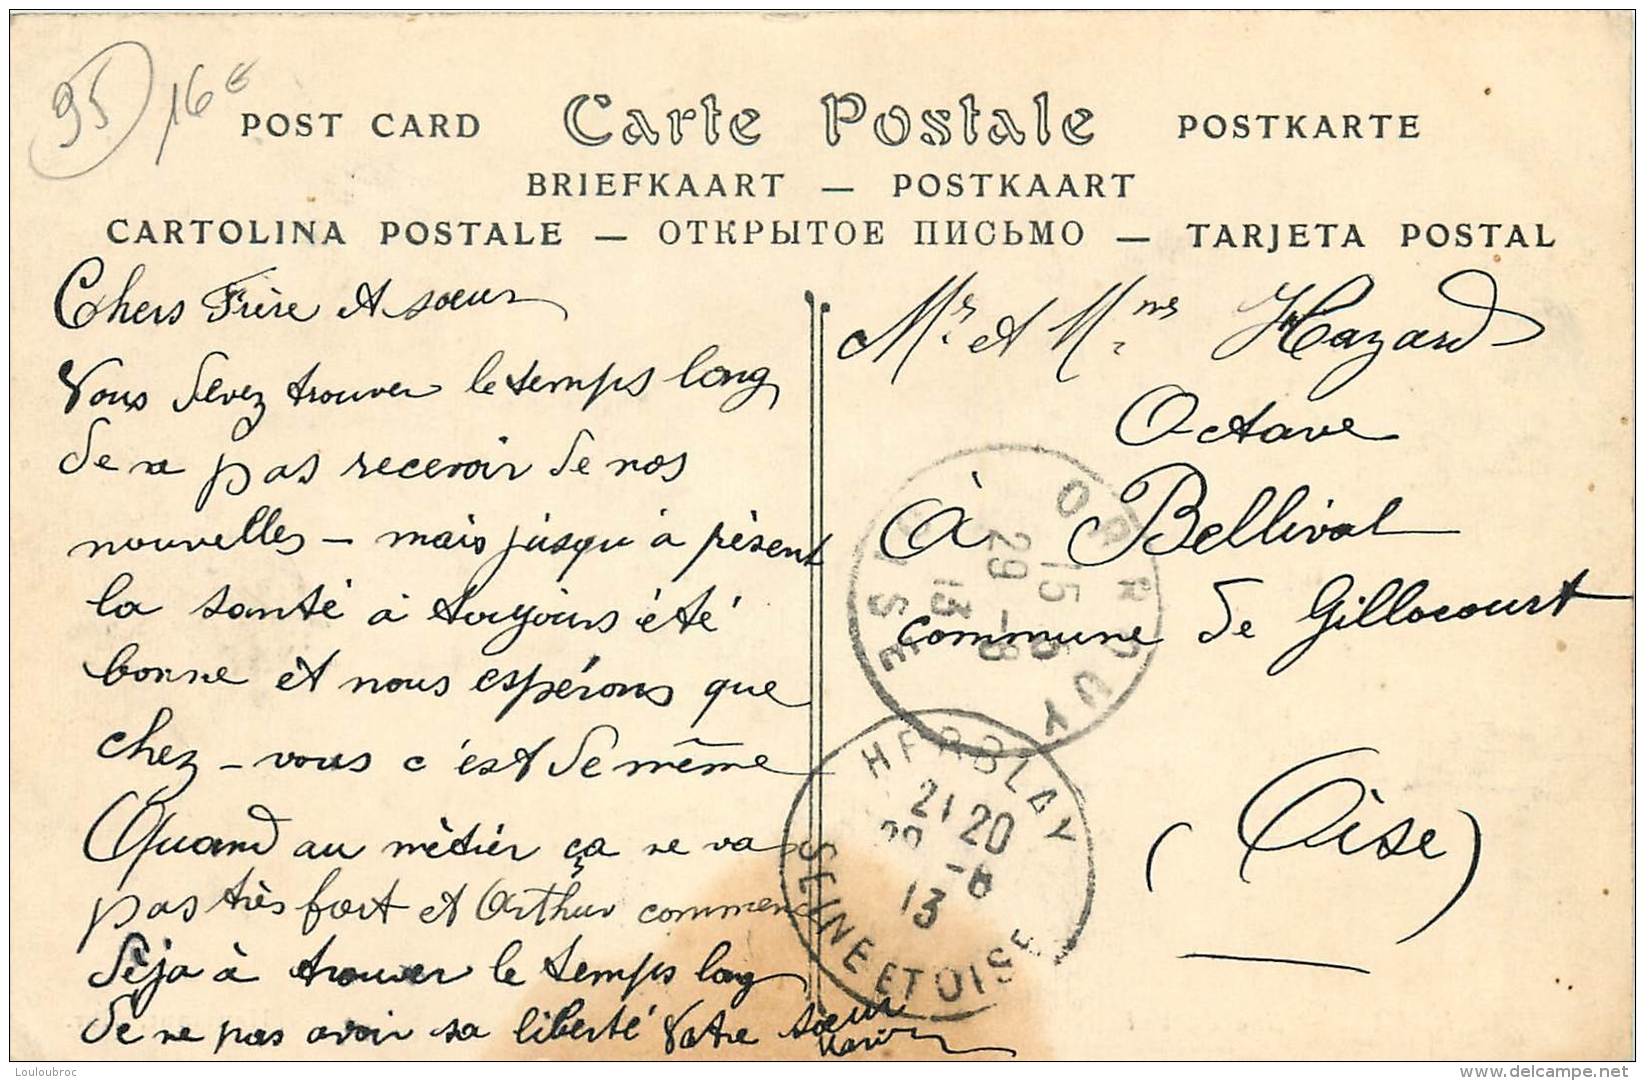 95 16€
POST CARD Carte Postale POSTKARTE
BRIEFKAART — POSTKAART
CARTOLINA POSTALE — ОТКРЫТОЕ ПИСЬМО — TARJETA POSTAL
Chers Frère et sœur
Vous devez trouver le temps long
de ne pas recevoir de nos
nouvelles — mais jusqu'à présent
la santé à toujours été
bonne et nous espérons que
chez-vous c'est de même
Quand au métier ça ne va
pas très fort et Arthur commence
déja à trouver le temps long
de ne pas avoir sa liberté Votre sœur
Mr. et Mme Hazard
Octave
à Bellival
commune de Gillocourt
(Oise)
ORROUY
15
29 -8
13
OISE
HERBLAY
21 20
-8
13
SEINE ET OISE
Louloubroc
www.delcampe.net